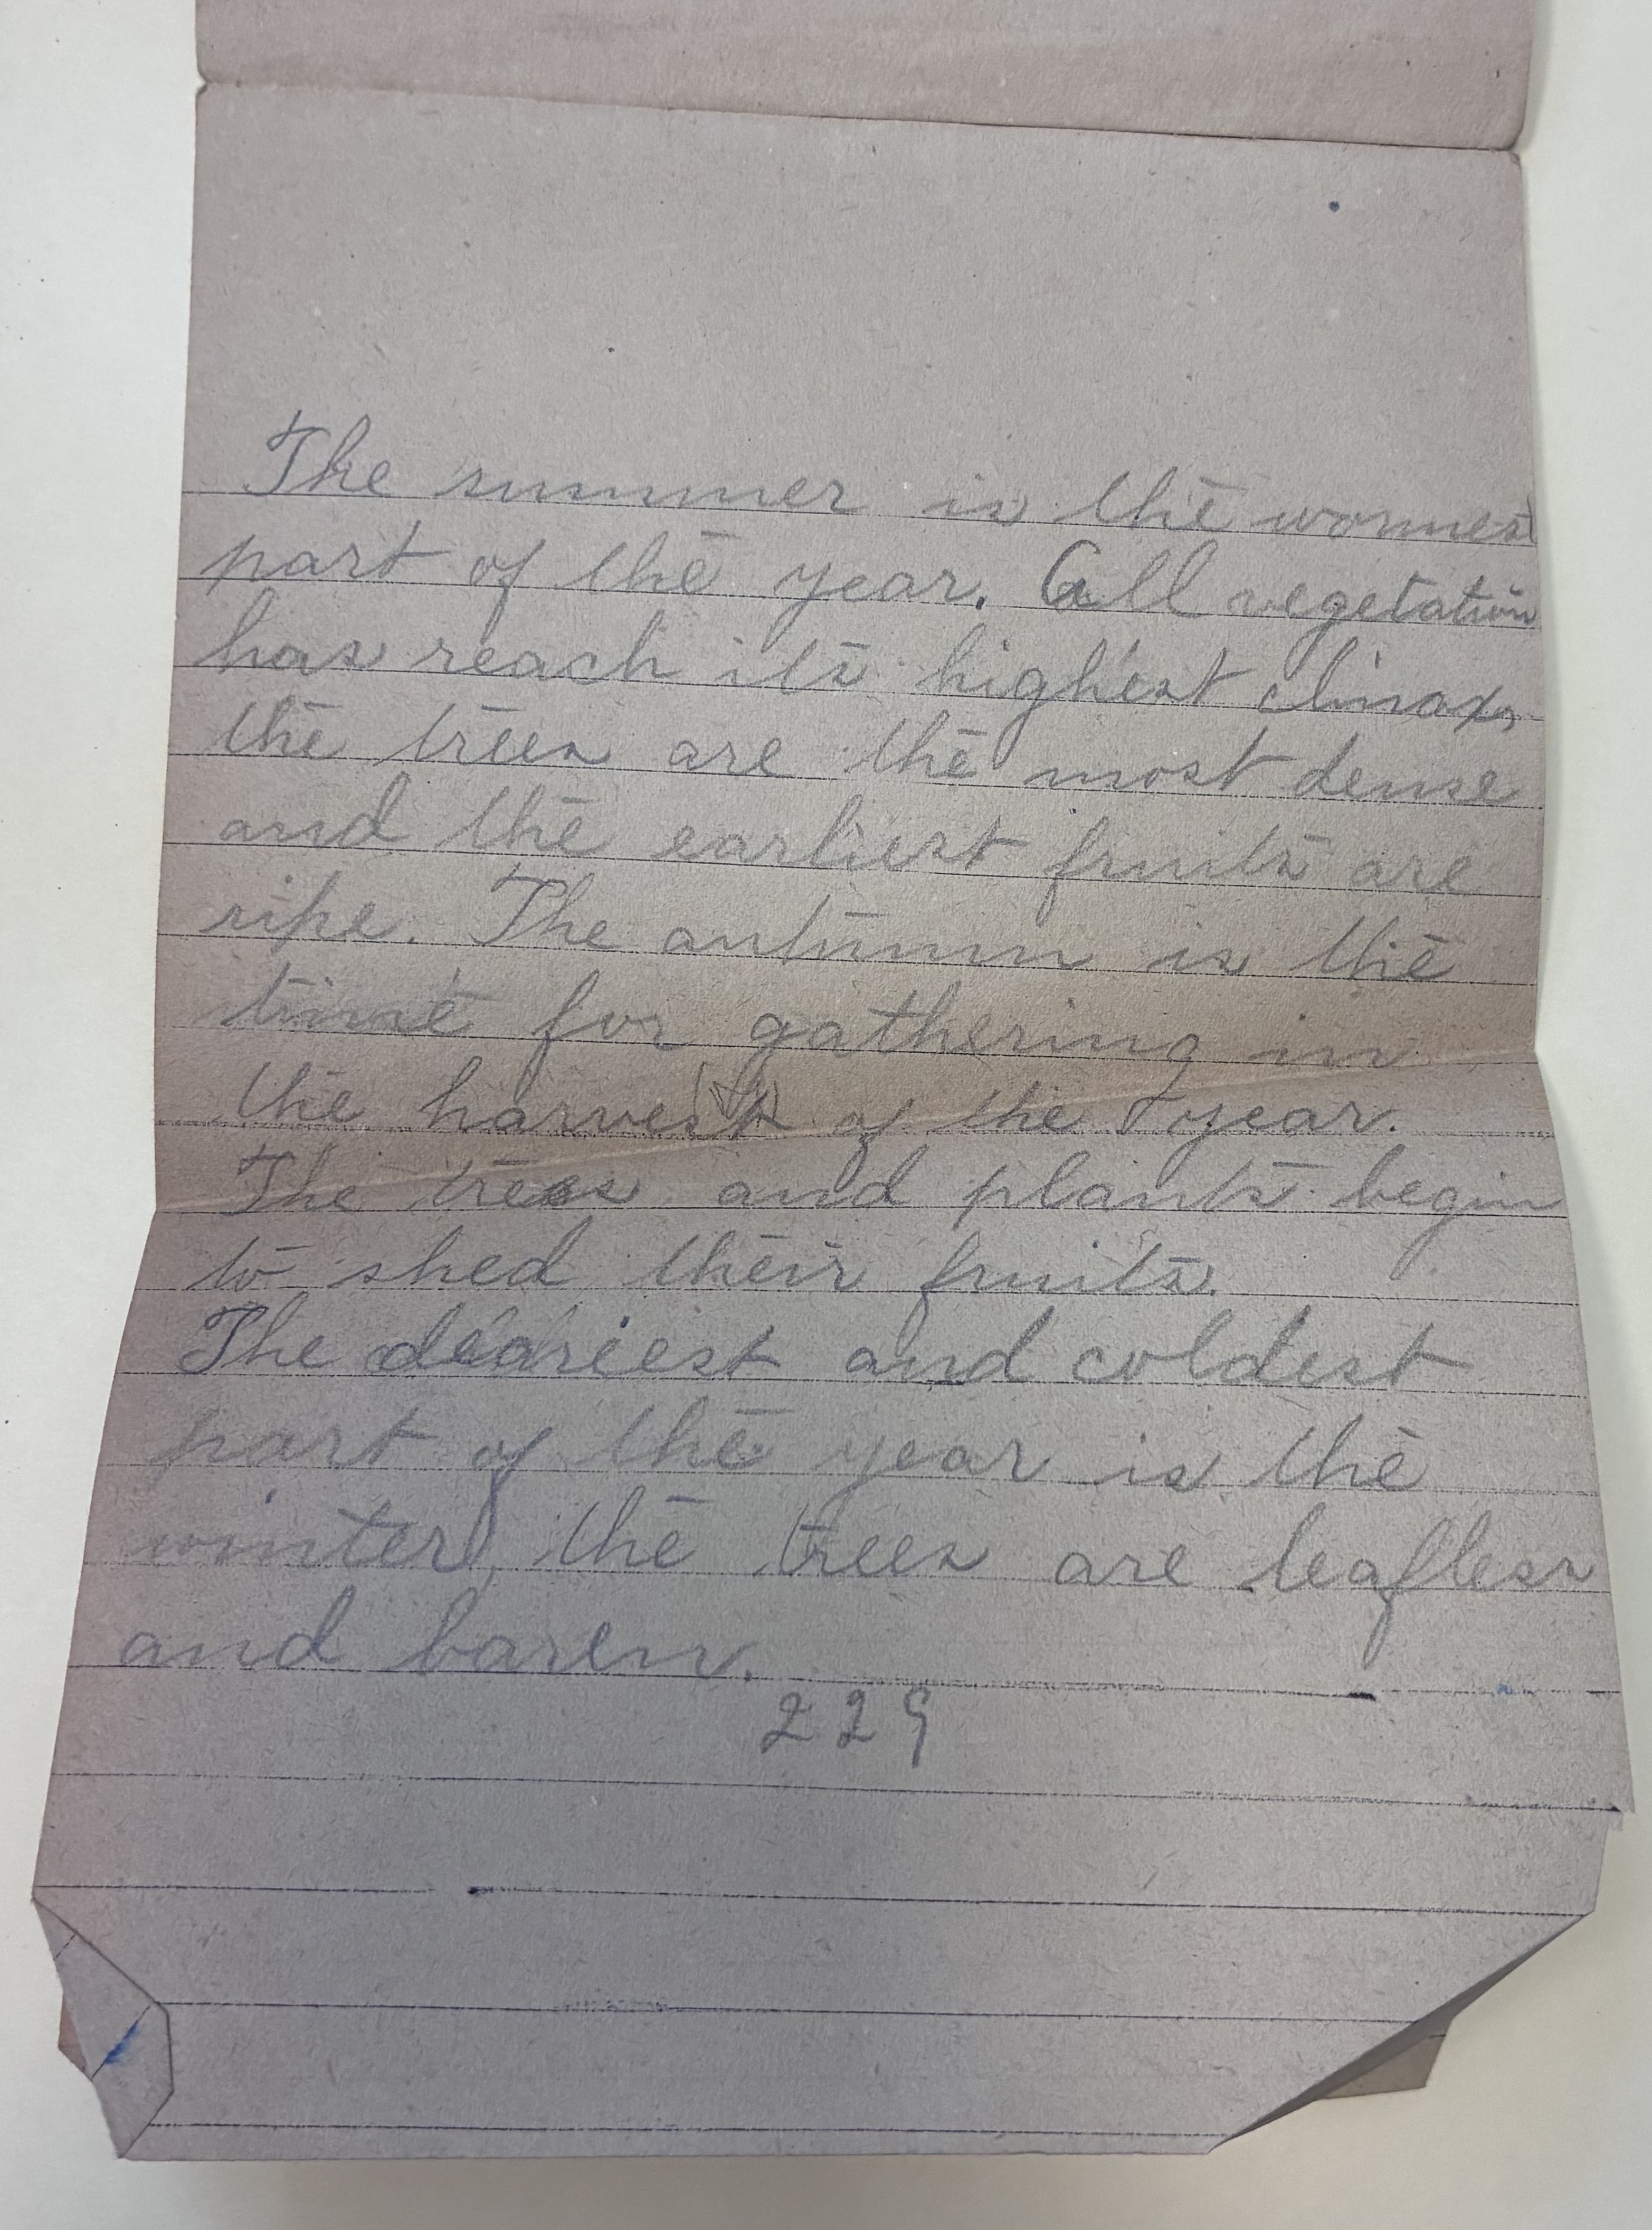 The summer is the wormest
part of the year. All vegetation
has reach its highest climax,
the trees are the most dense
and the earliest fruits are
ripe. The autumn is the
time for gathering in
the harvest of the year.
The trees and plants begin
to shed their fruits.
The deariest and coldest
part of the year is the
winter, the trees are leafless
and baren.
229